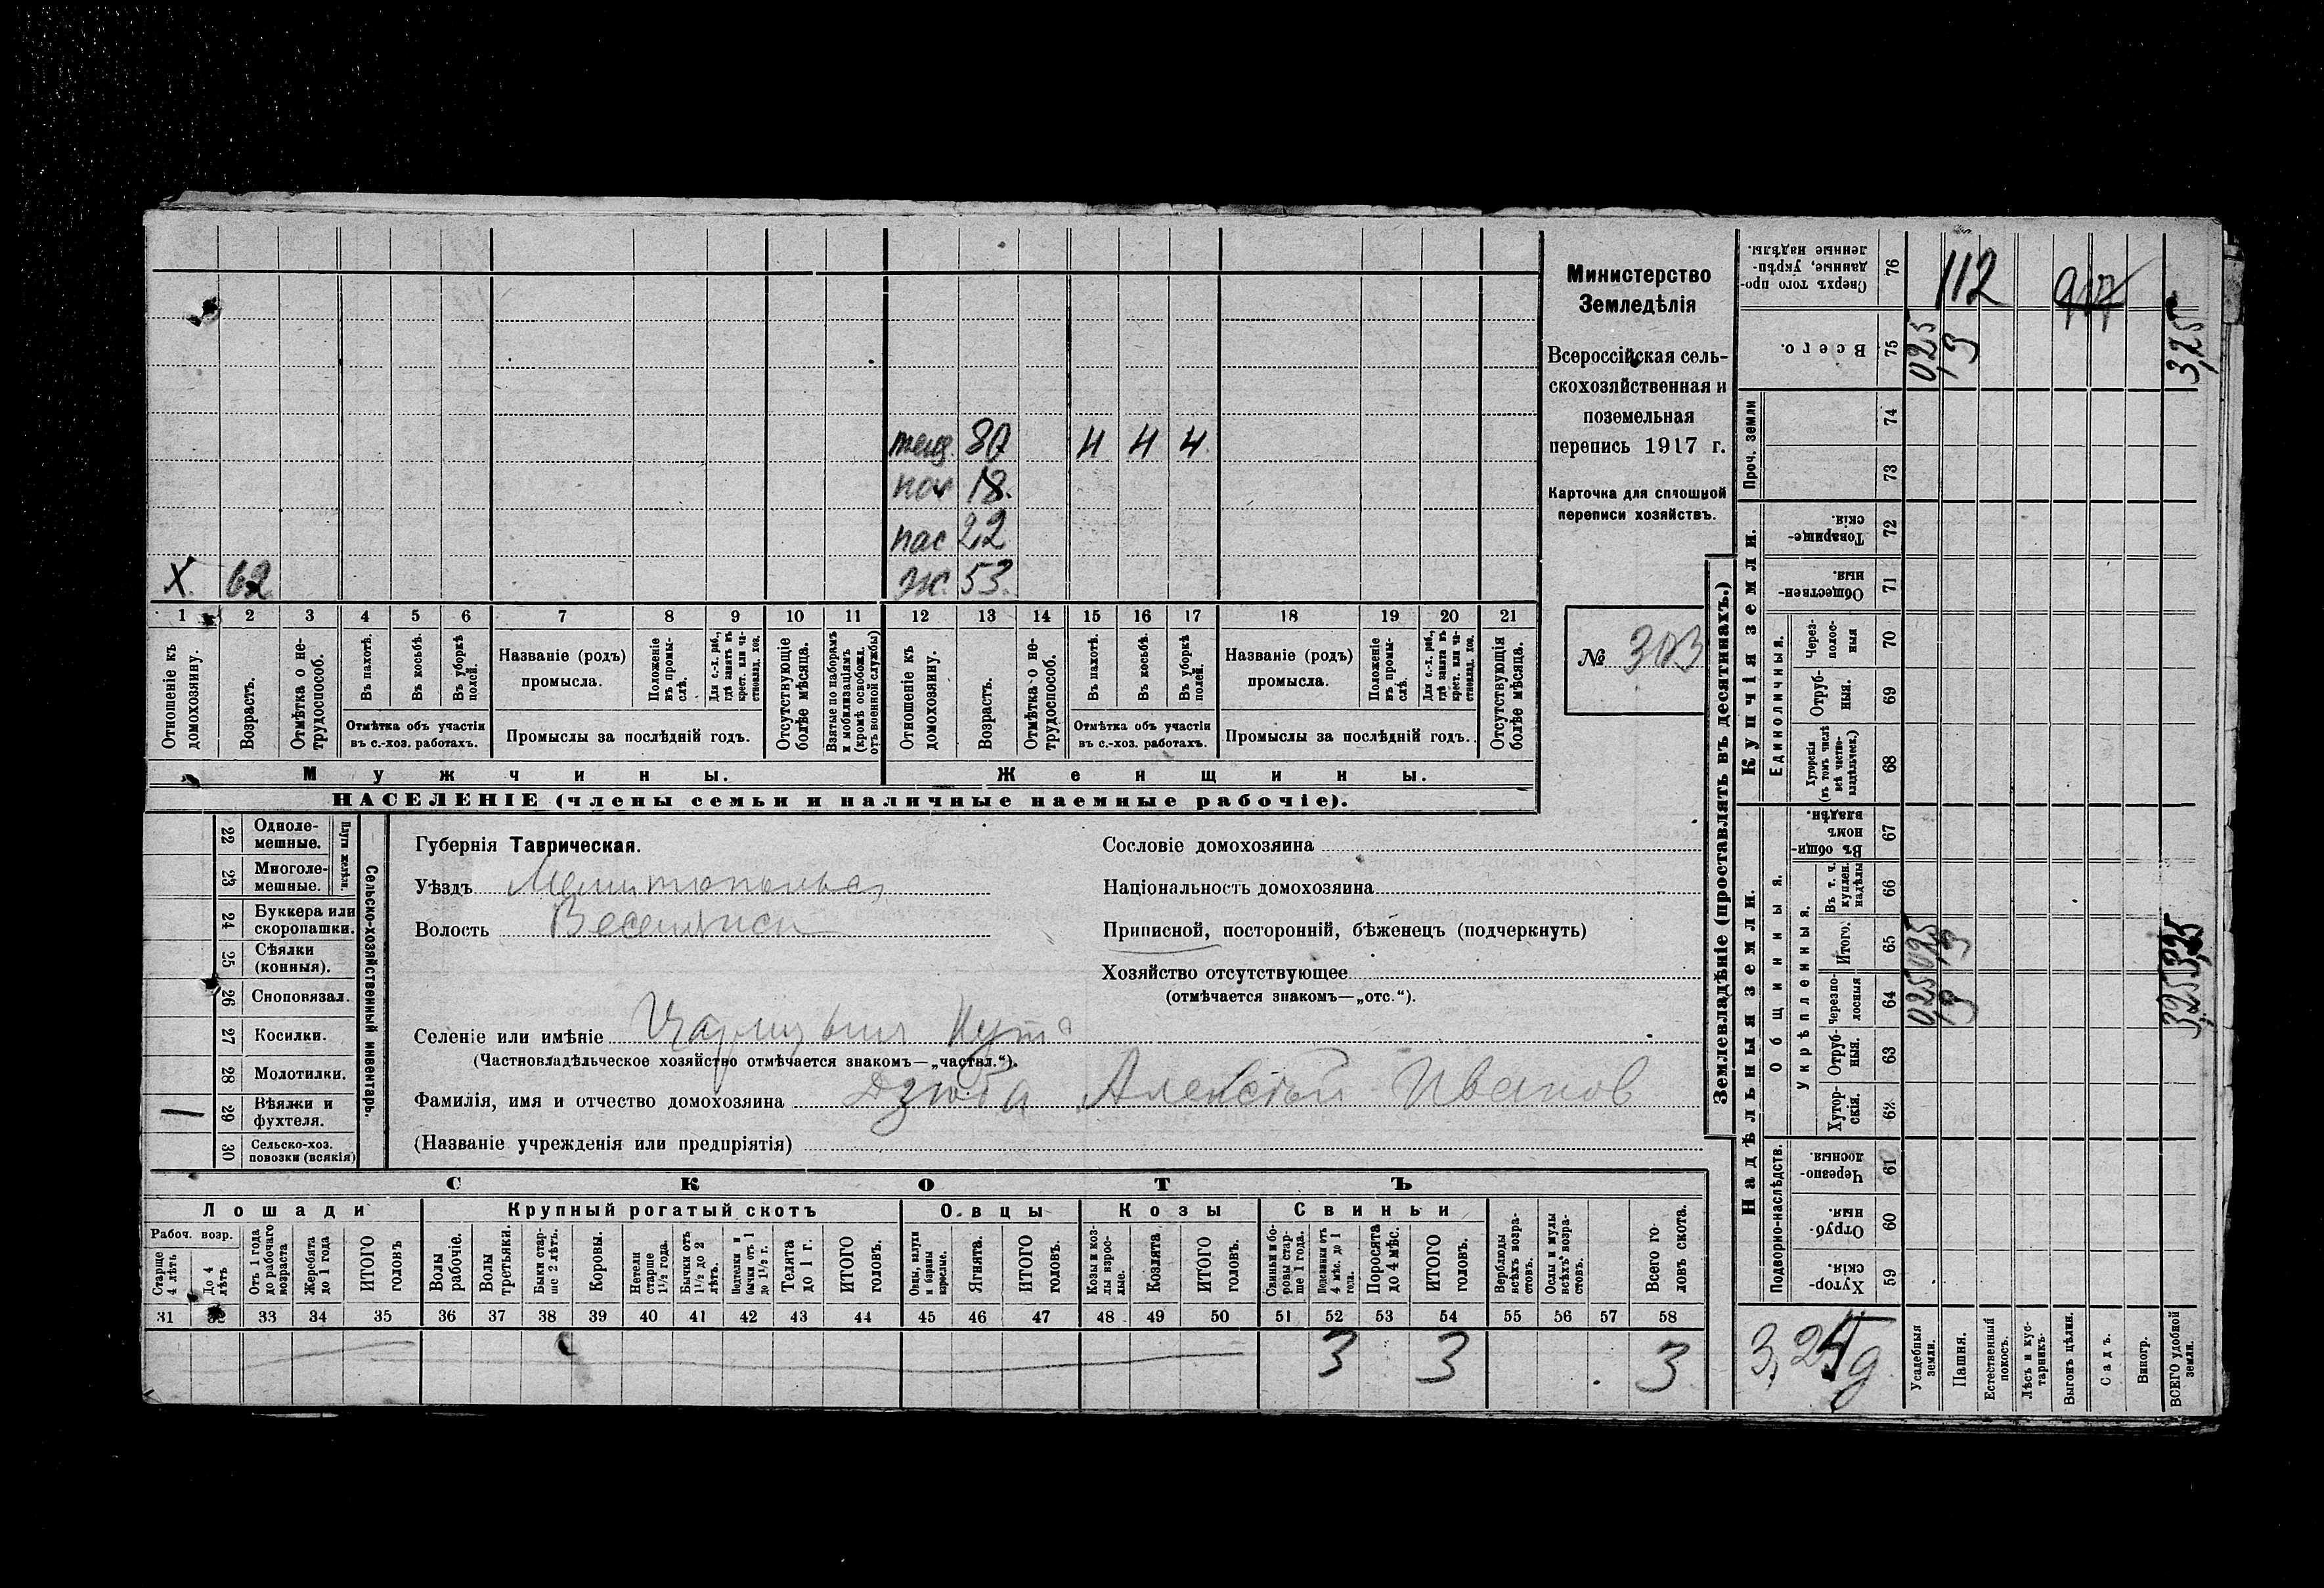 Министерство
Земледѣлія
Всероссійская сель-
скохозяйственная и
поземельная
перепись 1917 г.
Карточка для сплошной
переписи хозяйствъ.
№ 303
80
4 4 4
18.
22
Х. 62
ж. 53.
1 2 3 4 5 6 7 8 9 10 11 12 13 14 15 16 17 18 19 20 21
Отношеніе къ домохозяину.
Возрастъ.
Отмѣтка о не-
трудоспособ.
Въ пахотѣ.
Въ косьбѣ.
Въ уборкѣ полей.
Отмѣтка объ участіи
въ с.-хоз. работахъ.
Названіе (родъ)
промысла.
Положеніе въ промы-
слѣ.
Для с.-х. раб., гдѣ занятъ въ крест. или ча-
ствовлад. хоз.
Промыслы за послѣдній годъ.
Отсутствующіе болѣе мѣсяца.
Взятые по наборамъ и мобилизаціямъ (кромѣ освобожд. отъ военной службы)
Отношеніе къ домохозяину.
Возрастъ.
Отмѣтка о не-
трудоспособ.
Въ пахотѣ.
Въ косьбѣ.
Въ уборкѣ полей.
Отмѣтка объ участіи
въ с.-хоз. работахъ.
Названіе (родъ)
промысла.
Положеніе въ промы-
слѣ.
Для с.-х. раб., гдѣ занята въ крест. или ча-
ствовлад. хоз.
Промыслы за послѣдній годъ.
Отсутствующія болѣе мѣсяца.
Мужчины.
Женщины.
НАСЕЛЕНІЕ (члены семьи и наличные наемные рабочіе).
Сельско-хозяйственный инвентарь.
Плуги желѣзн.
22 Одноле-
мешные.
23 Многоле-
мешные.
24 Буккера или
скоропашки.
25 Сѣялки
(конныя).
26 Сноповязал.
27 Косилки.
28 Молотилки.
29 Вѣялки и
фухтеля.
30 Сельско-хоз.
повозки (всякія)
Губернія Таврическая.
Уѣздъ Мелитопольск
Волость
Сословіе домохозяина
Національность домохозяина
Приписной, посторонній, бѣженецъ (подчеркнуть)
Хозяйство отсутствующее
(отмѣчается знакомъ—„отс.“).
Селеніе или имѣніе
(Частновладѣльческое хозяйство отмѣчается знакомъ—„частвл.“).
Фамилія, имя и отчество домохозяина Дзюба Алексѣй Иванов
(Названіе учрежденія или предпріятія)
СКОТЪ
Лошади
Крупный рогатый скотъ
Овцы
Козы
Свиньи
Рабоч. возр.
Старше 4 лѣтъ
До 4 лѣтъ
Отъ 1 года до рабочаго возраста
Жеребята до 1 года
ИТОГО головъ
Волы рабочіе.
Волы третьяки.
Быки стар-
ше 2 лѣтъ.
Коровы.
Нетели старше 1½ года.
Бычки отъ 1½ до 2 лѣтъ.
Подтелки и бычки отъ 1 до 1½ г.
Телята до 1 г.
ИТОГО головъ.
Овцы, валухи и бараны взрослые.
Ягнята.
ИТОГО головъ.
Козы и коз-
лы взрос-
лые.
Козлята.
ИТОГО головъ.
Свиньи и бо-
ровы стар-
ше 1 года.
Подсвинки отъ 4 мѣс. до 1 года.
Поросята до 4 мѣс.
ИТОГО головъ.
Верблюды всѣхъ возра-
стовъ.
Ослы и мулы всѣхъ возра-
стовъ.
Всего го-
ловъ скота.
31 32 33 34 35 36 37 38 39 40 41 42 43 44 45 46 47 48 49 50 51 52 53 54 55 56 57 58
3 3 3
Землевладѣніе (проставлять въ десятинахъ.)
Надѣльныя земли.
Купчія земли.
Проч. земли
Подворно-наслѣдств.
Общинныя.
Укрѣпленныя.
Единоличныя.
Сверхъ того про-
данные, укрѣп-
ленные надѣлы. 76
112
Всего. 75
0,25 3,25
74
73
Товарище-
скія. 72
Обществен-
ныя. 71
Через-
полос-
ныя 70
Отруб-
ныя. 69
Хуторскія
(въ томъ числѣ
всѣ частно-
владѣльческ.) 68
Въ общин-
номъ
владѣн. 67
Въ т. ч.
куплен.
надѣлы 66
Итого. 65
0,25 3,25
Черезпо-
лосныя 64
0,25 3,25
Отруб-
ныя. 63
Хутор-
скія. 62
Черезпо-
лосныя. 61
Отруб-
ныя. 60
Хутор-
скія. 59
Усадебныя земли.
Пашня.
Естественный покосъ.
Лѣсъ и кус-
тарникъ.
Выгонъ цѣлин.
Садъ.
Виногр.
ВСЕГО удобной земли.